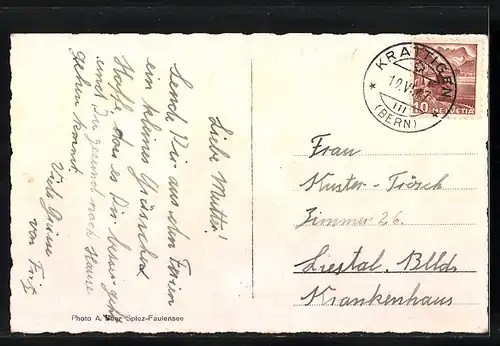 Liebe Mutter!
Sende Dir aus den Ferien
ein kleines Grüsschen
Hoffe, dass es Dir besser geht
und Du gesund nach Hause
gehen kannst.
Viele Grüsse
von
Photo A. Spiez-Faulensee
KRATTIGEN
(BERN)
10 HELVETIA
Frau
Zimmer 26.
Liestal. Blld.
Krankenhaus